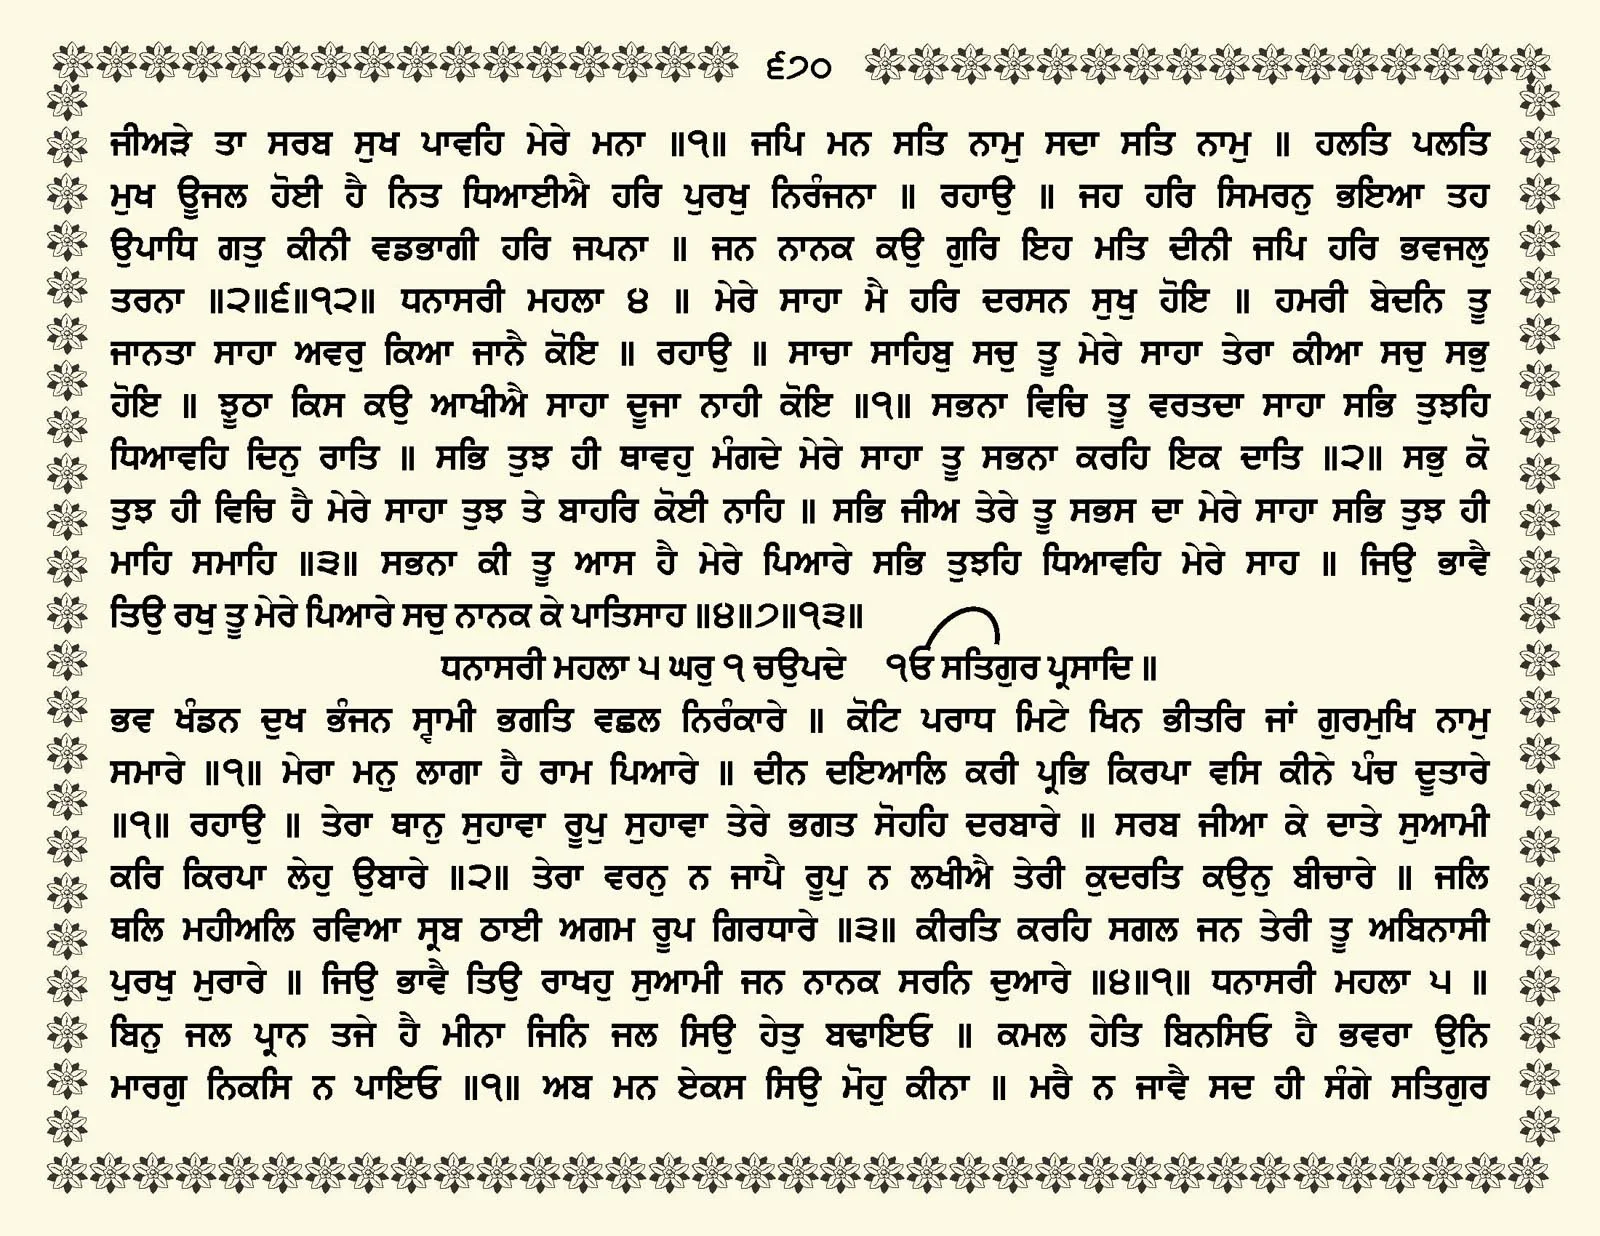 ੬੭੦
ਜੀਅੜੇ ਤਾ ਸਰਬ ਸੁਖ ਪਾਵਹਿ ਮੇਰੇ ਮਨਾ ॥੧॥ ਜਪਿ ਮਨ ਸਤਿ ਨਾਮੁ ਸਦਾ ਸਤਿ ਨਾਮੁ ॥ ਹਲਤਿ ਪਲਤਿ
ਮੁਖ ਊਜਲ ਹੋਈ ਹੈ ਨਿਤ ਧਿਆਈਐ ਹਰਿ ਪੁਰਖੁ ਨਿਰੰਜਨਾ ॥ ਰਹਾਉ ॥ ਜਹ ਹਰਿ ਸਿਮਰਨੁ ਭਇਆ ਤਹ
ਉਪਾਧਿ ਗਤੁ ਕੀਨੀ ਵਡਭਾਗੀ ਹਰਿ ਜਪਨਾ ॥ ਜਨ ਨਾਨਕ ਕਉ ਗੁਰਿ ਇਹ ਮਤਿ ਦੀਨੀ ਜਪਿ ਹਰਿ ਭਵਜਲੁ
ਤਰਨਾ ॥੨॥੬॥੧੨॥ ਧਨਾਸਰੀ ਮਹਲਾ ੪ ॥ ਮੇਰੇ ਸਾਹਾ ਮੈ ਹਰਿ ਦਰਸਨ ਸੁਖੁ ਹੋਇ ॥ ਹਮਰੀ ਬੇਦਨਿ ਤੂ
ਜਾਨਤਾ ਸਾਹਾ ਅਵਰੁ ਕਿਆ ਜਾਨੈ ਕੋਇ ॥ ਰਹਾਉ ॥ ਸਾਚਾ ਸਾਹਿਬੁ ਸਚੁ ਤੂ ਮੇਰੇ ਸਾਹਾ ਤੇਰਾ ਕੀਆ ਸਚੁ ਸਭੁ
ਹੋਇ ॥ ਝੂਠਾ ਕਿਸ ਕਉ ਆਖੀਐ ਸਾਹਾ ਦੂਜਾ ਨਾਹੀ ਕੋਇ ॥੧॥ ਸਭਨਾ ਵਿਚਿ ਤੂ ਵਰਤਦਾ ਸਾਹਾ ਸਭਿ ਤੁਝਹਿ
ਧਿਆਵਹਿ ਦਿਨੁ ਰਾਤਿ ॥ ਸਭਿ ਤੁਝ ਹੀ ਥਾਵਹੁ ਮੰਗਦੇ ਮੇਰੇ ਸਾਹਾ ਤੂ ਸਭਨਾ ਕਰਹਿ ਇਕ ਦਾਤਿ ॥੨॥ ਸਭੁ ਕੋ
ਤੁਝ ਹੀ ਵਿਚਿ ਹੈ ਮੇਰੇ ਸਾਹਾ ਤੁਝ ਤੇ ਬਾਹਰਿ ਕੋਈ ਨਾਹਿ ॥ ਸਭਿ ਜੀਅ ਤੇਰੇ ਤੂ ਸਭਸ ਦਾ ਮੇਰੇ ਸਾਹਾ ਸਭਿ ਤੁਝ ਹੀ
ਮਾਹਿ ਸਮਾਹਿ ॥੩॥ ਸਭਨਾ ਕੀ ਤੂ ਆਸ ਹੈ ਮੇਰੇ ਪਿਆਰੇ ਸਭਿ ਤੁਝਹਿ ਧਿਆਵਹਿ ਮੇਰੇ ਸਾਹ ॥ ਜਿਉ ਭਾਵੈ
ਤਿਉ ਰਖੁ ਤੂ ਮੇਰੇ ਪਿਆਰੇ ਸਚੁ ਨਾਨਕ ਕੇ ਪਾਤਿਸਾਹ ॥੪॥੭॥੧੩॥
ਧਨਾਸਰੀ ਮਹਲਾ ੫ ਘਰੁ ੧ ਚਉਪਦੇ ੴ ਸਤਿਗੁਰ ਪ੍ਰਸਾਦਿ ॥
ਭਵ ਖੰਡਨ ਦੁਖ ਭੰਜਨ ਸ੍ਵਾਮੀ ਭਗਤਿ ਵਛਲ ਨਿਰੰਕਾਰੇ ॥ ਕੋਟਿ ਪਰਾਧ ਮਿਟੇ ਖਿਨ ਭੀਤਰਿ ਜਾਂ ਗੁਰਮੁਖਿ ਨਾਮੁ
ਸਮਾਰੇ ॥੧॥ ਮੇਰਾ ਮਨੁ ਲਾਗਾ ਹੈ ਰਾਮ ਪਿਆਰੇ ॥ ਦੀਨ ਦਇਆਲਿ ਕਰੀ ਪ੍ਰਭਿ ਕਿਰਪਾ ਵਸਿ ਕੀਨੇ ਪੰਚ ਦੂਤਾਰੇ
॥੧॥ ਰਹਾਉ ॥ ਤੇਰਾ ਥਾਨੁ ਸੁਹਾਵਾ ਰੂਪੁ ਸੁਹਾਵਾ ਤੇਰੇ ਭਗਤ ਸੋਹਹਿ ਦਰਬਾਰੇ ॥ ਸਰਬ ਜੀਆ ਕੇ ਦਾਤੇ ਸੁਆਮੀ
ਕਰਿ ਕਿਰਪਾ ਲੇਹੁ ਉਬਾਰੇ ॥੨॥ ਤੇਰਾ ਵਰਨੁ ਨ ਜਾਪੈ ਰੂਪੁ ਨ ਲਖੀਐ ਤੇਰੀ ਕੁਦਰਤਿ ਕਉਨੁ ਬੀਚਾਰੇ ॥ ਜਲਿ
ਥਲਿ ਮਹੀਅਲਿ ਰਵਿਆ ਸ੍ਰਬ ਠਾਈ ਅਗਮ ਰੂਪ ਗਿਰਧਾਰੇ ॥੩॥ ਕੀਰਤਿ ਕਰਹਿ ਸਗਲ ਜਨ ਤੇਰੀ ਤੂ ਅਬਿਨਾਸੀ
ਪੁਰਖੁ ਮੁਰਾਰੇ ॥ ਜਿਉ ਭਾਵੈ ਤਿਉ ਰਾਖਹੁ ਸੁਆਮੀ ਜਨ ਨਾਨਕ ਸਰਨਿ ਦੁਆਰੇ ॥੪॥੧॥ ਧਨਾਸਰੀ ਮਹਲਾ ੫ ॥
ਬਿਨੁ ਜਲ ਪ੍ਰਾਨ ਤਜੇ ਹੈ ਮੀਨਾ ਜਿਨਿ ਜਲ ਸਿਉ ਹੇਤੁ ਬਢਾਇਓ ॥ ਕਮਲ ਹੇਤਿ ਬਿਨਸਿਓ ਹੈ ਭਵਰਾ ਉਨਿ
ਮਾਰਗੁ ਨਿਕਸਿ ਨ ਪਾਇਓ ॥੧॥ ਅਬ ਮਨ ਏਕਸ ਸਿਉ ਮੋਹੁ ਕੀਨਾ ॥ ਮਰੈ ਨ ਜਾਵੈ ਸਦ ਹੀ ਸੰਗੇ ਸਤਿਗੁਰ